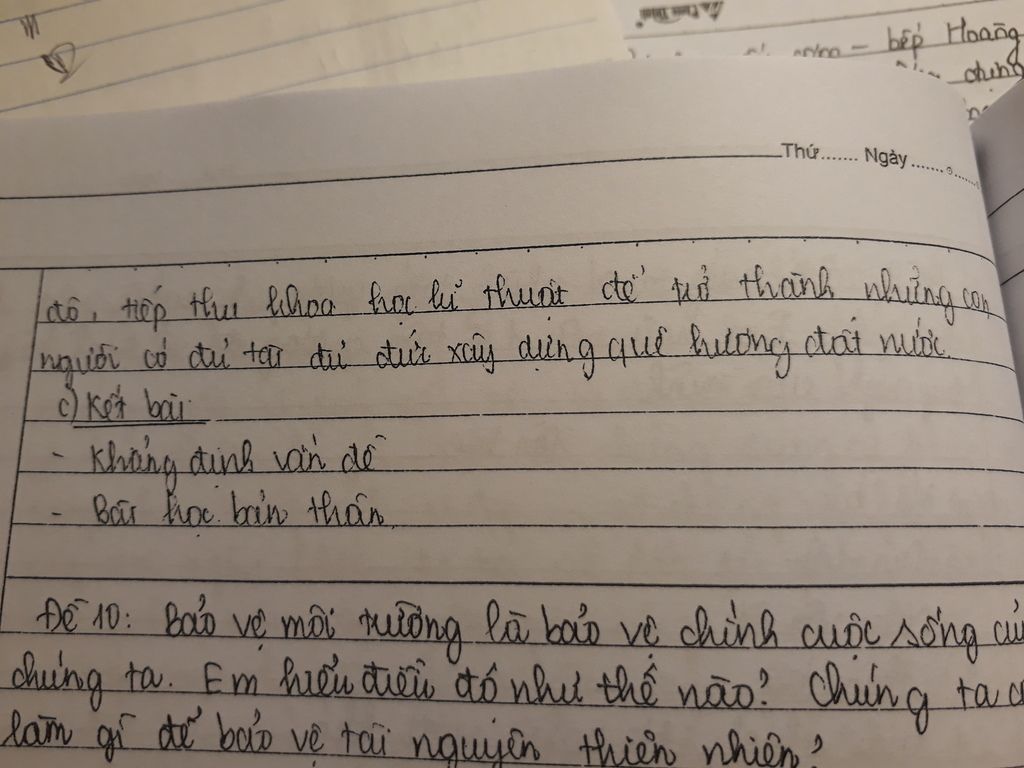 bếp Hoàng
chúng
Thứ....... Ngày.............
độ, tiếp thu khoa học kĩ thuật để trở thành những con
người có đủ tài đủ đức xây dựng quê hương đất nước.
c) Kết bài
- Khẳng định vấn đề
- Bài học bản thân
Đề 10: Bảo vệ môi trường là bảo vệ chính cuộc sống củ
chúng ta. Em hiểu điều đó như thế nào? Chúng ta c
làm gì để bảo vệ tài nguyên thiên nhiên?